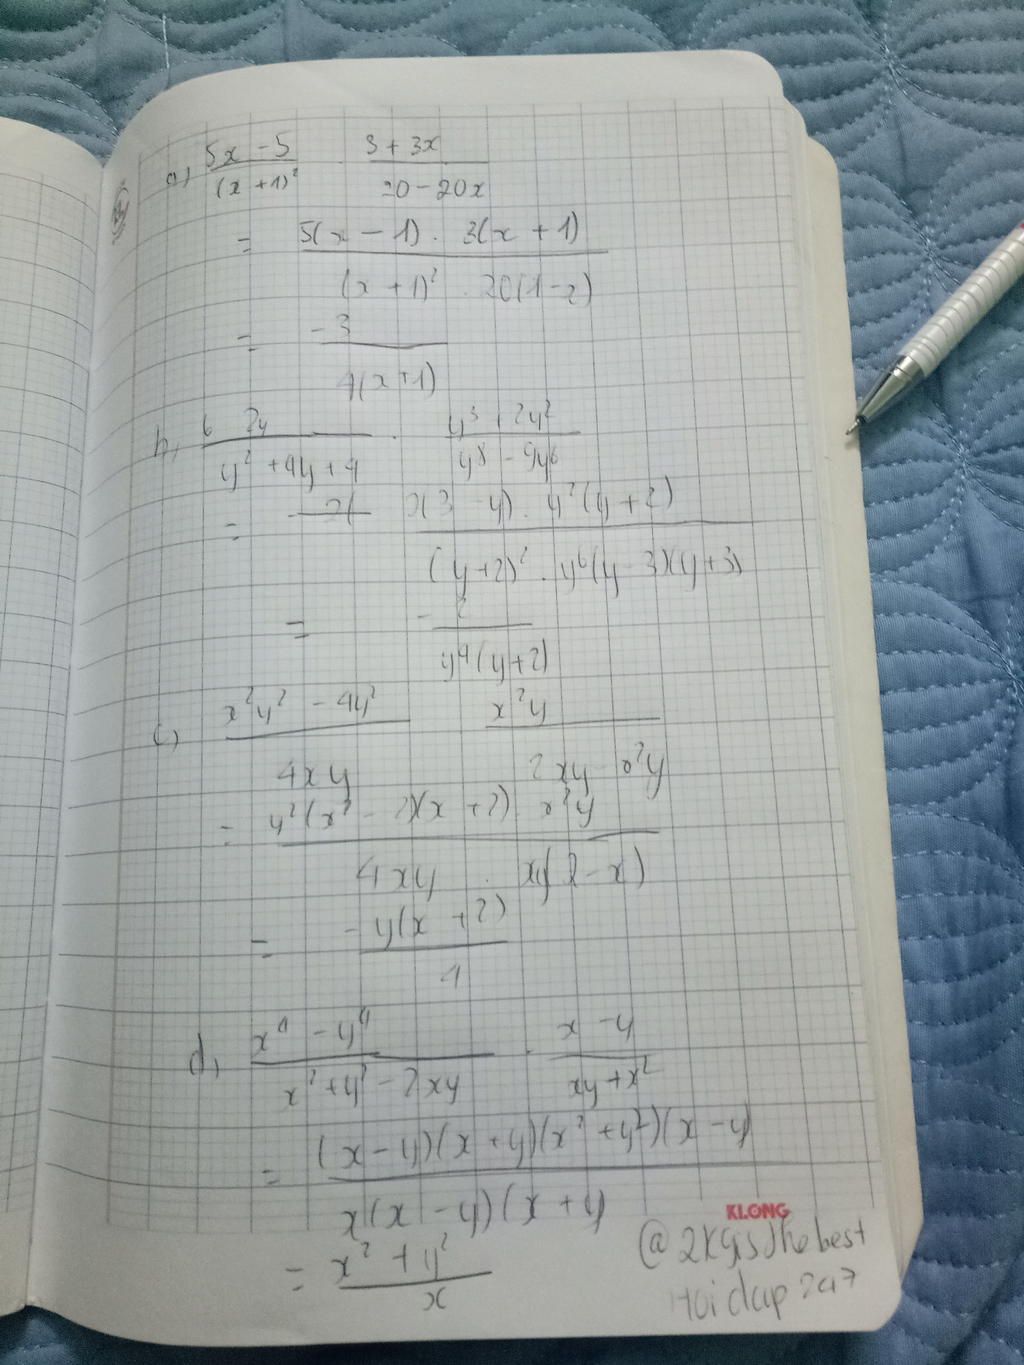 a, 5x - 5 / (x + 1)² · 3 + 3x / 20 - 20x
= 5(x - 1) · 3(x + 1) / (x + 1)² · 20(1 - x)
= -3 / 4(x + 1)
b, 6 2y / y² + 4y + 4 · y³ + 2y² / y⁸ - 9y⁶
= 2(3 - y) · y²(y + 2) / (y + 2)² · y⁶(y - 3)(y + 3)
= - 2 / y⁴(y + 2)
c, x²y² - 4y² / 4xy x²y / 2xy - x²y
= y²(x² - 2)(x + 2) · x²y / 4xy · xy(2 - x)
= - y(x + 2) / 4
d, x⁴ - y⁴ / x² + y² - 2xy · x - y / xy + x²
= (x - y)(x + y)(x² + y²)(x - y) / x(x - y)(x + y)
= x² + y² / x
KLONG
@2Kgisthebest
Hoidap247